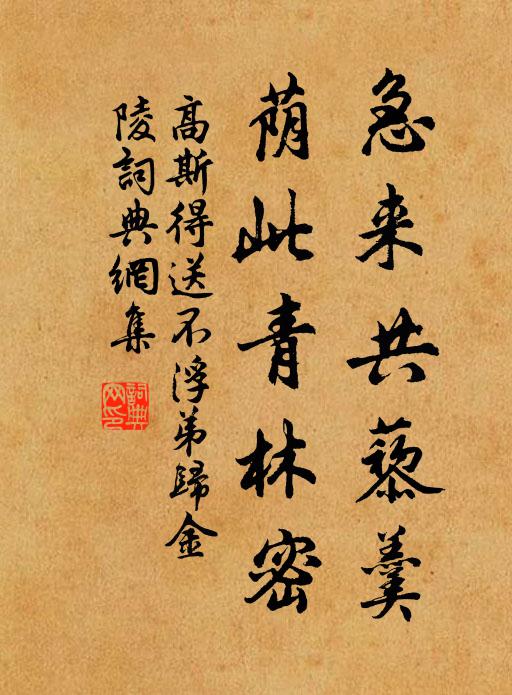 急来共藜羹
荫此青林密
高斯得送不浮弟歸金
陵詞典網集
詞典网印